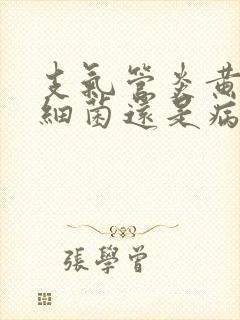 支氣管炎黃
細菌還是病
張學曾